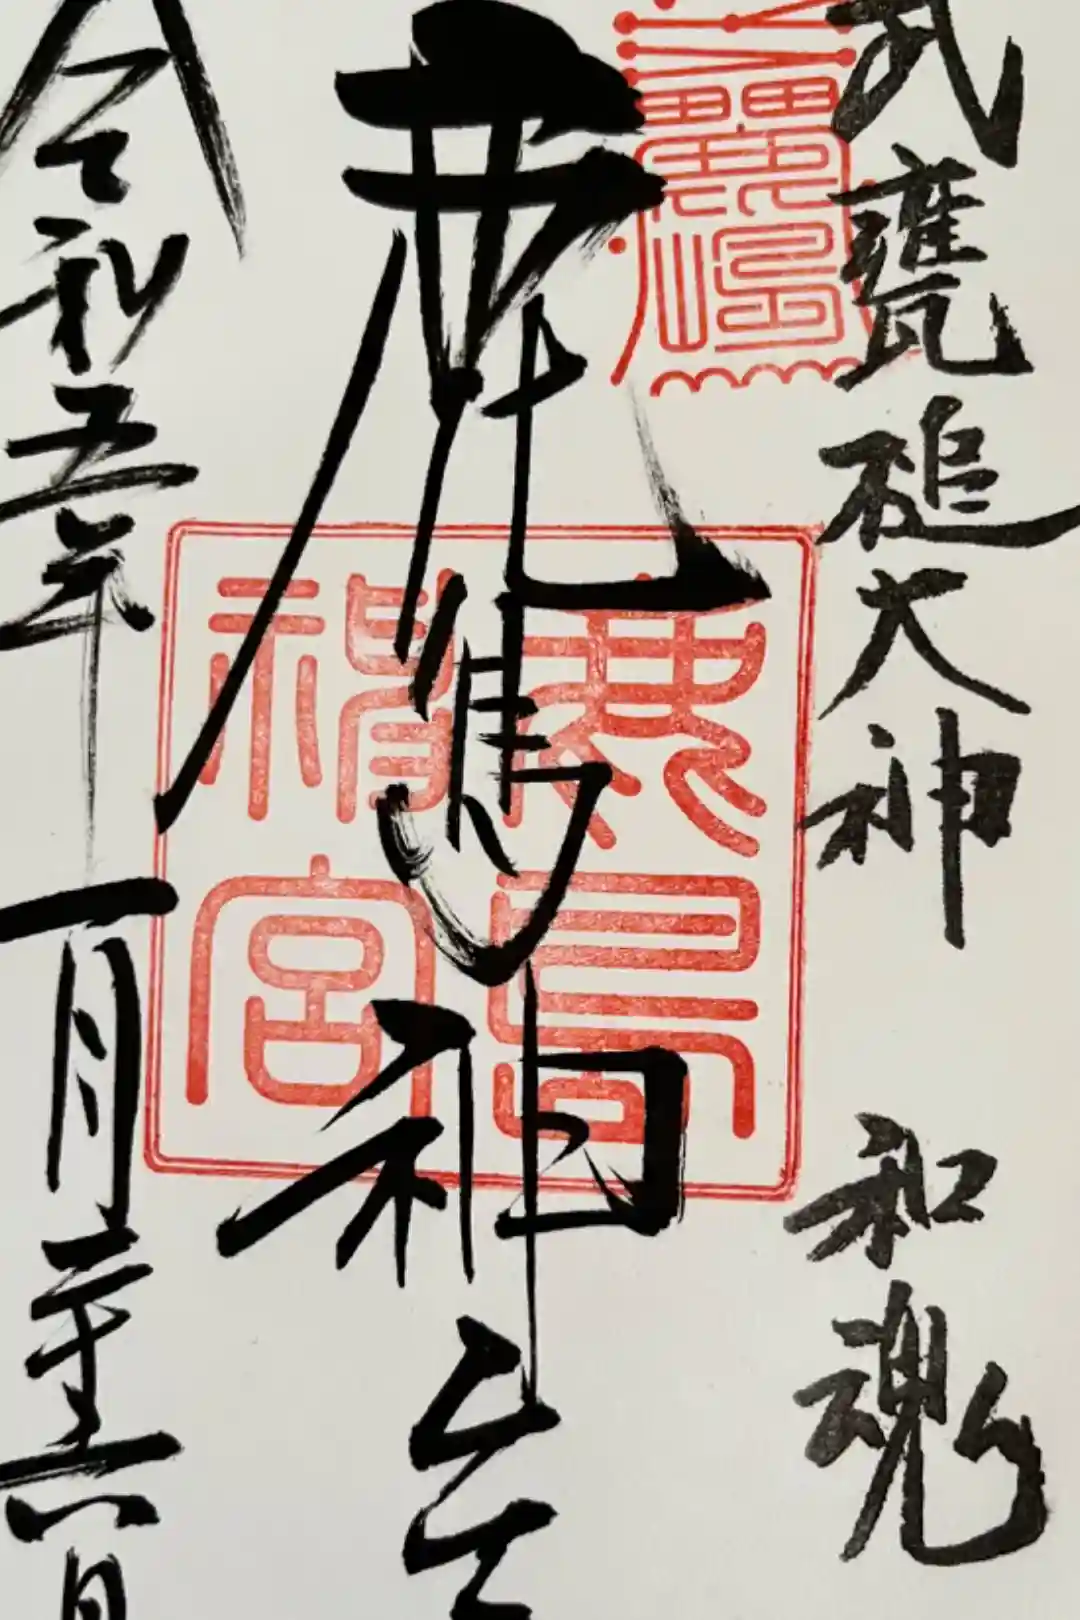 武甕槌大神 和魂
鹿嶋神宮
鹿島神宮
令和五年 一月二十六日